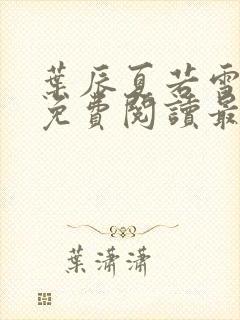 葉辰夏若雪
免費閱讀最
葉瀟瀟